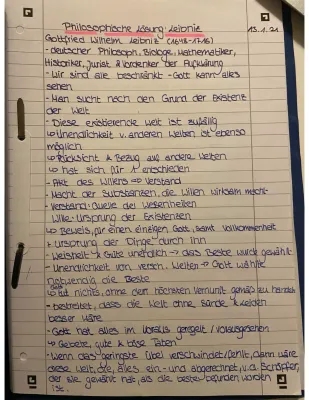 Philosophische Lösung - Leibniz
13.1.21
Gottfried Wilhelm Leibniz (1646-1716)
-deutscher Philosoph, Biologe, Mathematiker,
Historiker, Jurist & Vordenker der Aufklärung
- Wir sind alle beschränkt - Gott kann alles
sehen
- Man sucht nach den Grund der Existenz
der Welt
- Diese existierende Welt ist zufällig
↳ Unendlichkeit v. anderen Welten ist ebenso
möglich
↳ Rücksicht & Bezug auf andere Welten
↳ hat sich für 1 entschieden
- Akt des Willens => Verstand
- Macht der Substanzen, die Willen wirksam macht
- Verstand: Quelle der Wesenheiten
Wille: Ursprung der Existenzen
↳ Beweis, für einen einzigen Gott, samt Vollkommenheit
+ Ursprung der Dinge durch ihn
- Weisheit + Güte unendlich -> das Beste wurde gewählt
- Unendlichkeit von versch. Welten -> Gott wählte
notwendig die Beste
↳ tut nichts, ohne der höchsten Vernunft gemäß zu handeln
- bestreitet, dass die Welt ohne Sünde & Leiden
besser wäre
- Gott hat alles im Voraus geregelt / vorausgesehen
↳ Gebete, gute & böse Taten
- Wenn das geringste Übel verschwindet/fehlt, dann wäre
diese Welt, die, alles ein- und abgerechnet, v.d. Schöpfer,
der sie gewählt hat, als die beste befunden worden
ist.